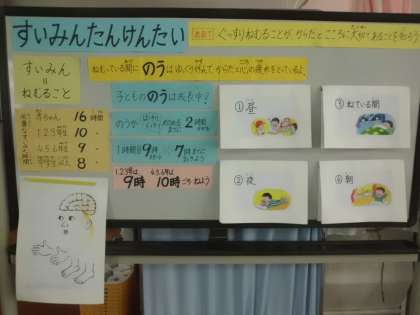 すいみんたんけんたい
めあて ぐっすりねむることが、からだとこころに大切であることをしろう
すいみん
=
ねむること
ねむっている間に のうは ゆっくり休んで、からだと心の疲れをとっているよ。
子どもののうは成長中!
赤ちゃん 16時間
1.2.3年生 10
4.5.6年生 9
8
2時間
1時間目 9時 7時までに
1.2.3年は 4.5.6年は
9時 10時ごろねよう
①昼
③ねている間
②夜
④朝